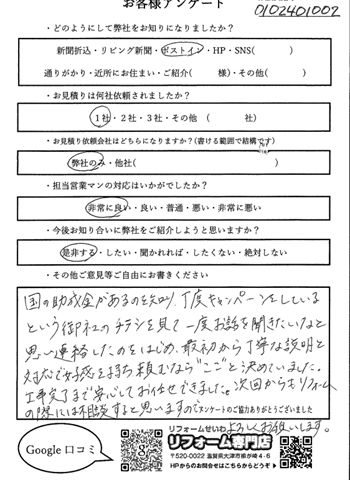 お客様アンケート
0102401002
・どのようにして弊社をお知りになりましたか？
新聞折込・リビング新聞・ポストイン・HP・SNS(　　　)
通りがかり・近所にお住まい・ご紹介(　　　様)・その他(　　　)
・お見積りは何社依頼されましたか？
1社・2社・3社・その他（　　　社）
・お見積り依頼会社はどちらになりますか？(書ける範囲で結構です)
弊社のみ・他社(　　　)
・担当営業マンの対応はいかがでしたか？
非常に良い・良い・普通・悪い・非常に悪い
・今後お知り合いに弊社をご紹介しようと思いますか？
是非する・したい・聞かれれば・したくない・絶対しない
・その他ご意見等ご自由にお書きください
国の助成金があるのを知り、丁度キャンペーンをしている
という御社のチラシを見て一度お話を聞きたいなと
思い連絡したのをはじめ、最初から丁寧な説明と
対応で好感を持ち頼むなら"ここ"と決めていました。
工事完了まで安心してお任せできました。次回からもリフォーム
の際には相談すると思いますので
よろしくお願いします。
アンケートのご協力ありがとうございました
Google 口コミ
リフォームせいわ
リフォーム専門店
〒520-0022 滋賀県大津市柳が崎4-6
HPからのお問合せはこちらからどうぞ